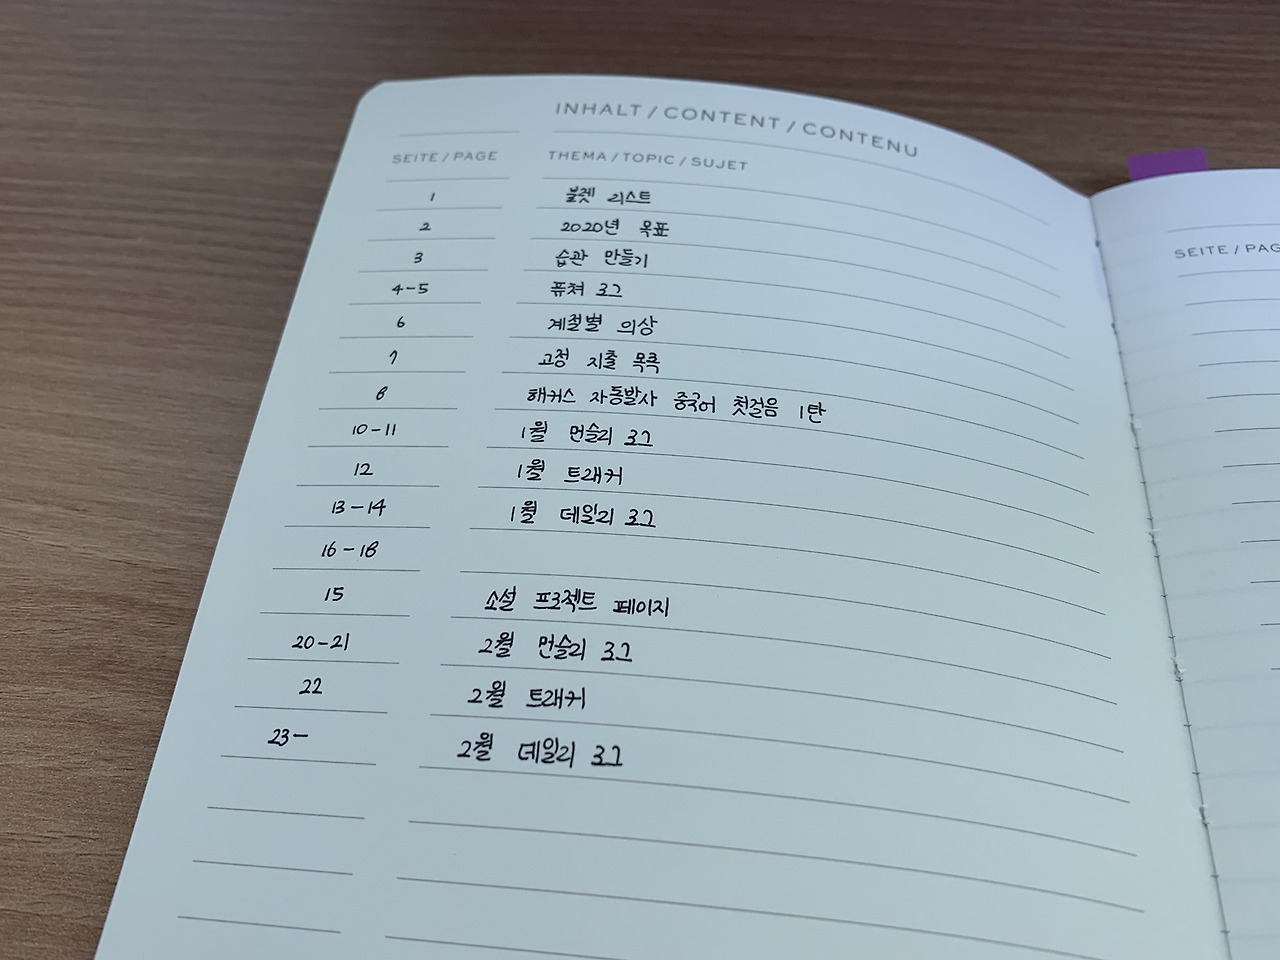 INHALT / CONTENT / CONTENU
SEITE / PAGE THEMA / TOPIC / SUJET
1 불렛 리스트
2 2020년 목표
3 습관 만들기
4-5 퓨쳐 로그
6 계절별 의상
7 고정 지출 목록
8 해커스 자동발사 중국어 첫걸음 1탄
10-11 1월 먼슬리 로그
12 1월 트래커
13-14 1월 데일리 로그
16-18
15 소설 프로젝트 페이지
20-21 2월 먼슬리 로그
22 2월 트래커
23- 2월 데일리 로그
SEITE / PAG